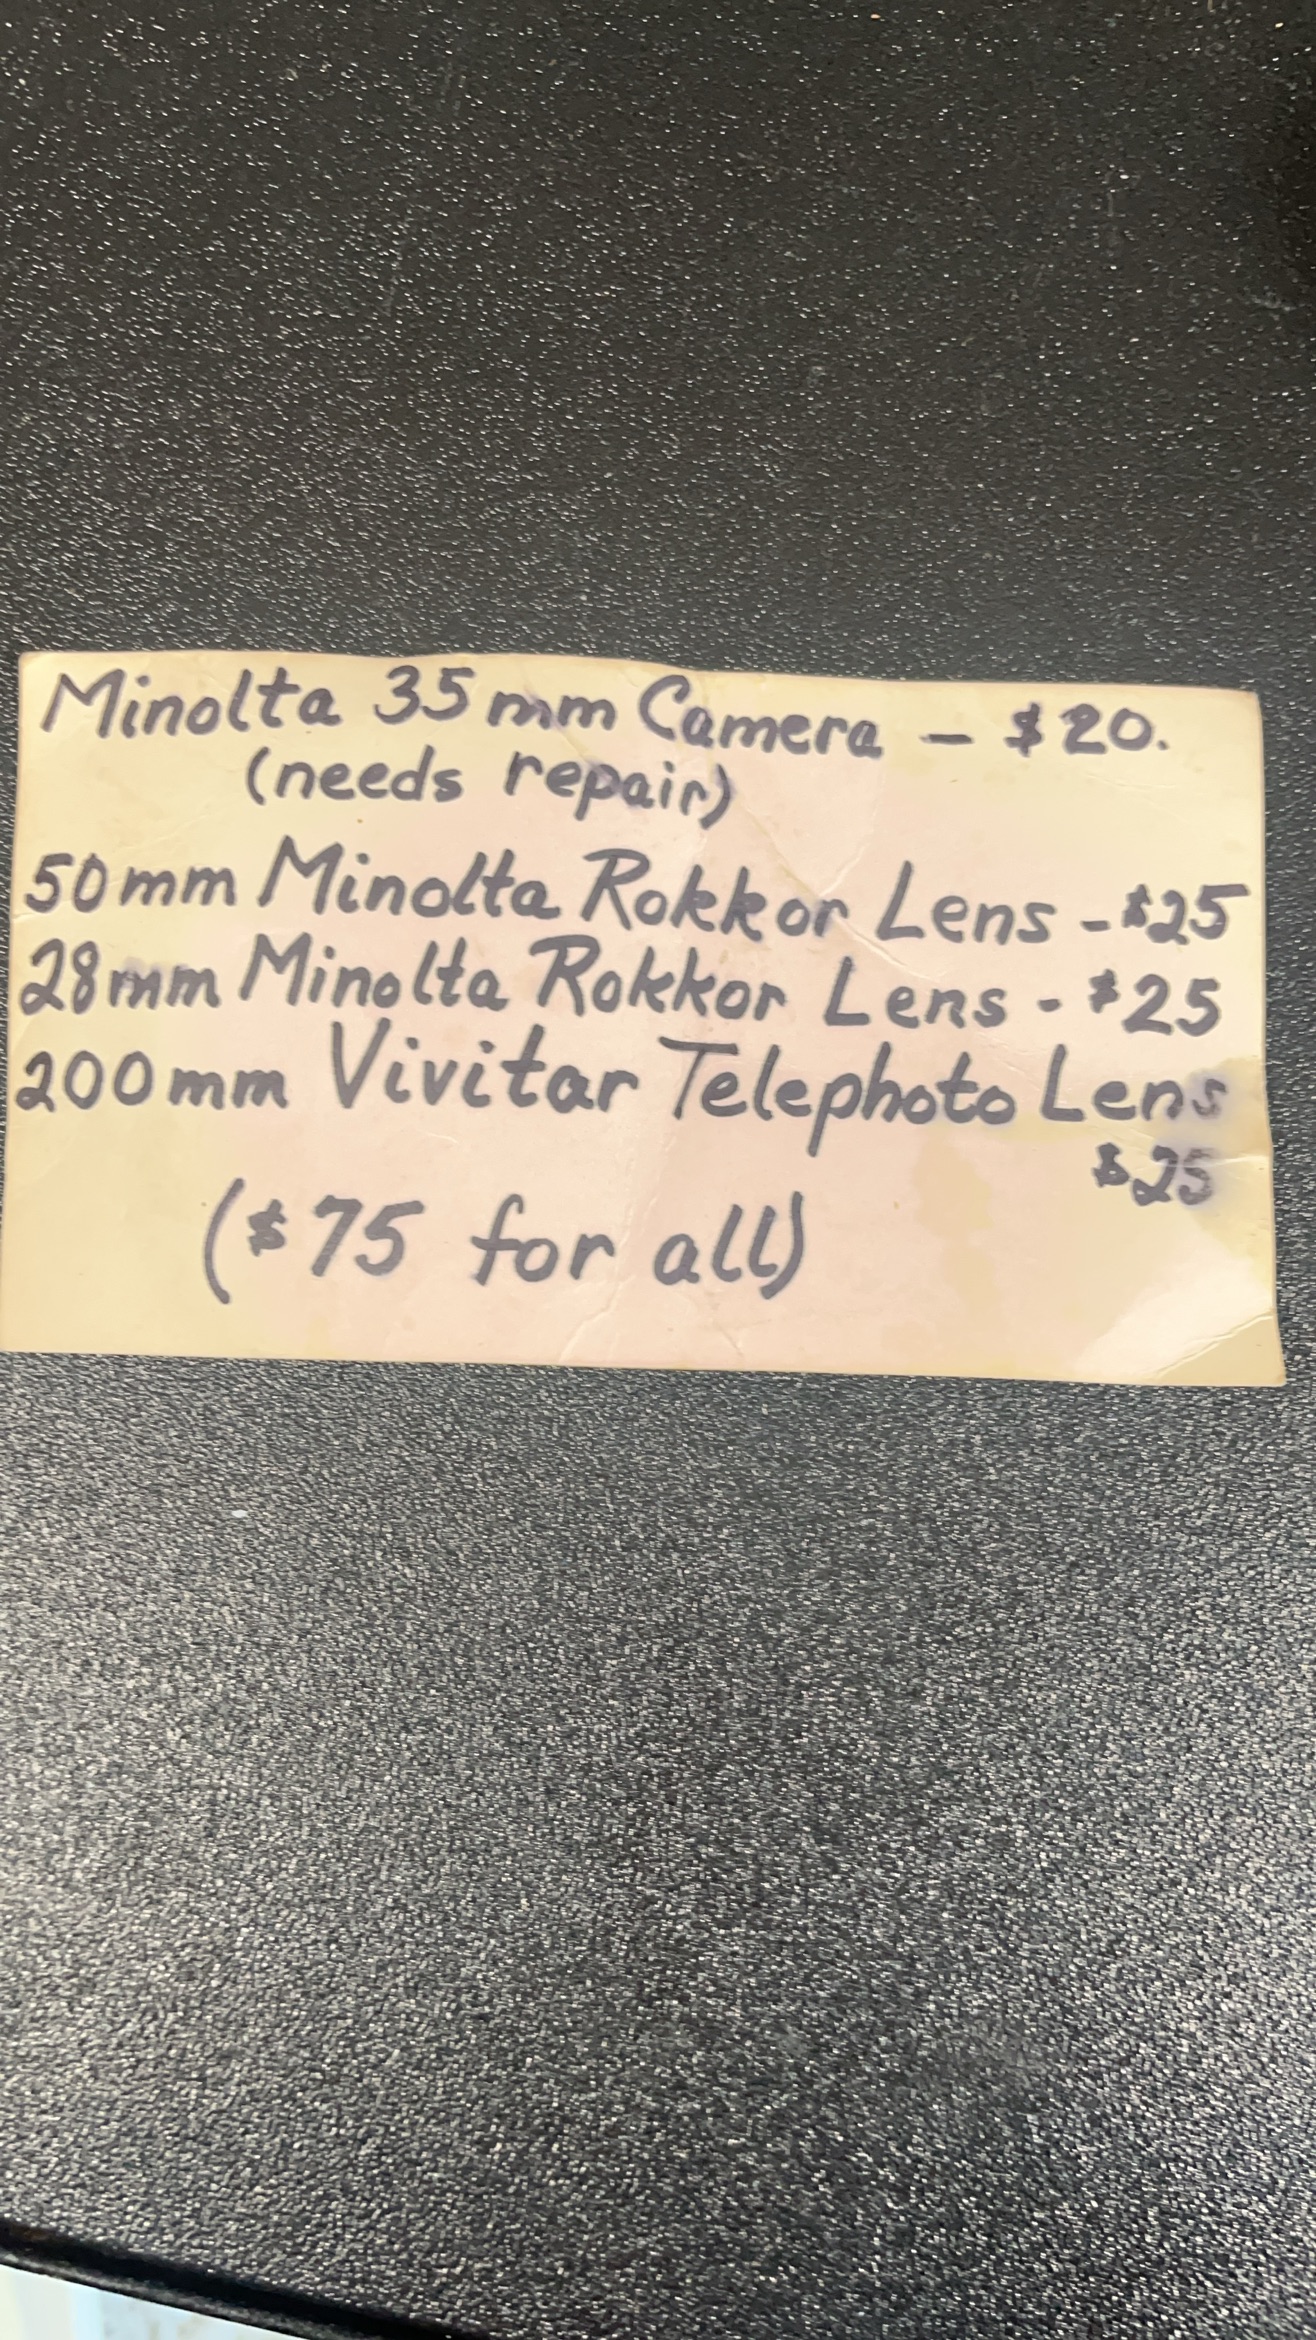 Minolta 35mm Camera – $20.
(needs repair)
50mm Minolta Rokkor Lens - $25
28mm Minolta Rokkor Lens - $25
200mm Vivitar Telephoto Lens
$25
($75 for all)